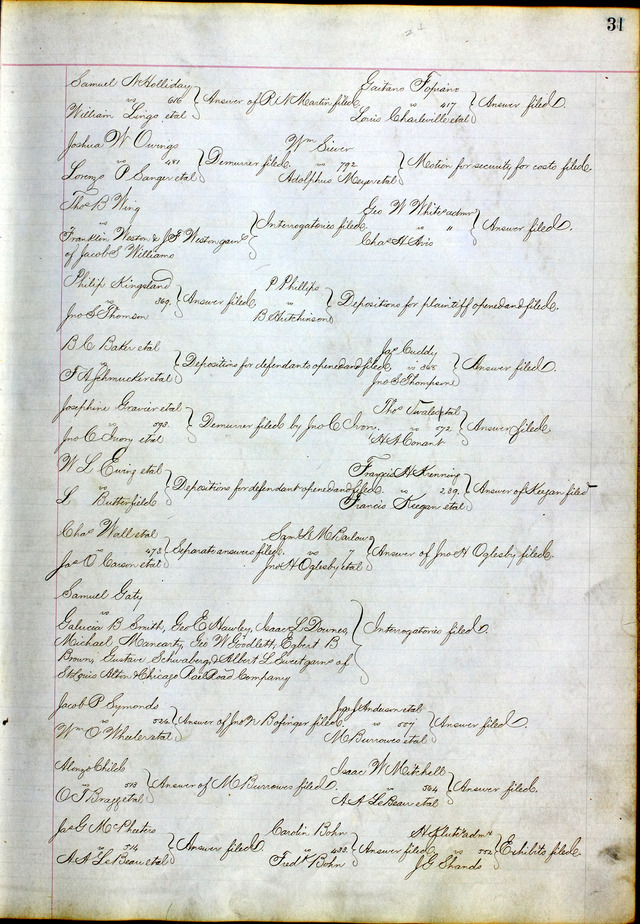 31
Samuel A Holliday
vs 616 Answer of P. N. Martin filed.
William Lingo et al
Gaetano Fopiano
vs 417 Answer filed.
Louis Charleville et al
Joshua W Owings
vs 481 Demurrer filed.
Lorenzo P Sanger et al
Wm Siever
vs 792 Motion for security for costs filed.
Adolphus Meyer et al
Thos B Wing
vs Interrogatories filed.
Franklin Weston & J F Weston garns
of Jacob S Williams
Geo W White admr
vs " Answer filed.
Chas H
Philip Kingsland
vs 369. Answer filed.
Jno S Thomson
P Phillips
vs Depositions for plaintiff opened and filed.
B Hutchinson
B. C. Baker et al
vs Depositions for defendants opened and filed
F A Schmucker et al
Jas Cuddy
vs 365 Answer filed.
Jno S Thompson
Josephine Gravier et al
vs 593. Demurrer filed by Jno C Ivory.
Jno C Ivory et al
Thos Swales et al
vs 572 Answer filed
H A Conant
W L Ewing et al
vs Depositions for defendant opened and filed.
L Butterfield
Francis H Krenning
vs 239. Answer of Keegan filed
Francis Keegan et al
Chas Wall et al
vs 473 Separate answers filed.
Jas O Carson et al
Saml M Parlow
vs 7 Answer of Jno H Oglesby filed.
Jno H Oglesby et al
Samuel Gaty
vs
Galucia B Smith, Geo E Hawley, Isaac L Downes,
Michael Manearty, Geo W Goodlett, Egbert B
Brown, Gustave Schwaberg & Albert L Sweet garns of
St Louis Alton & Chicago Rail Road Company
Interrogatories filed.
Jacob P Symonds
vs 526 Answer of Jno N Bofinger filed
Wm O Wheeler et al
J Anderson et al
vs 557 Answer filed.
M Burrowes et al
Alonzo Child
vs 513 Answer of M Burrowes filed.
O T Bragg et al
Isaac W Mitchell
vs 504 Answer filed.
A A LeBeau et al
Jas G McPheeters
vs 514 Answer filed
A A LeBeau et al
Carolin Bohn
vs 433. Answer filed.
Fredk Bohn
admr
vs 552 Exhibits filed.
J G Shands